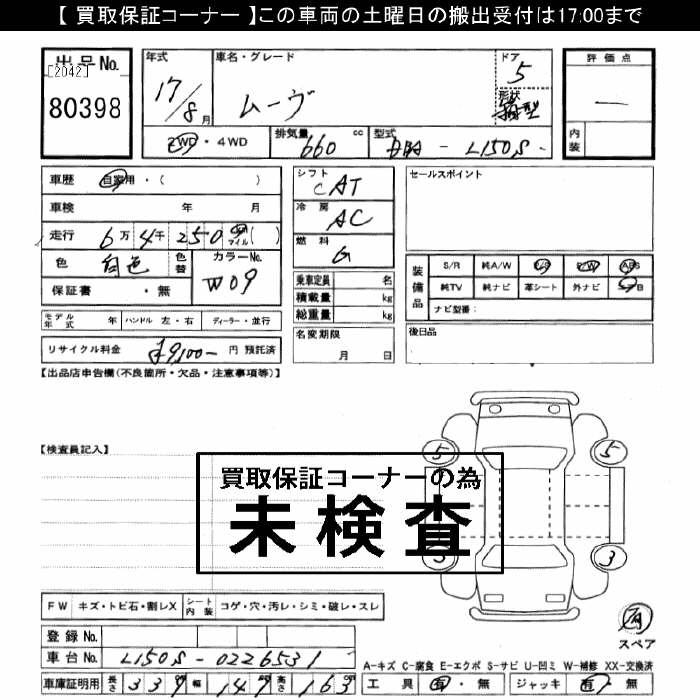 【 買取保証コーナー 】この車両の土曜日の搬出受付は17:00まで
出品No.
[2042]
80398
年式
17/8 月
車名・グレード
ムーヴ
ドア
5
形状
箱型
評価点
—
内装
2WD・4WD
排気量
660 cc
型式
DBA - L150S -
車歴 自家用・( )
車検 年 月
走行 6万4千250 km マイル ( )
色 白色 色替
カラーNo.
W09
保証書 ・無
シフト
CAT
冷房
AC
燃料
G
乗車定員 名
積載量 kg
総重量 kg
名変期限
月 日
セールスポイント
装備品
S/R 純A/W P/S P/W ABS
純TV 純ナビ 革シート 外ナビ エアB
ナビ型番:
後日品
モデル年式 年 ハンドル 左・右 ディーラー・並行
リサイクル料金 ¥9,100- 円 預託済
【出品店申告欄(不良箇所・欠品・注意事項等)】
【検査員記入】
買取保証コーナーの為
未検査
5
5
5
3
有
スペア
FW キズ・トビ石・割レX シート内装 コゲ・穴・汚レ・シミ・破レ・スレ
登録No.
車台No. L150S-0226531
車庫証明用 長さ 339 幅 147 高さ 163
A-キズ C-腐食 E-エクボ S-サビ U-凹ミ W-補修 XX-交換済
工具 有・無 ジャッキ 有・無